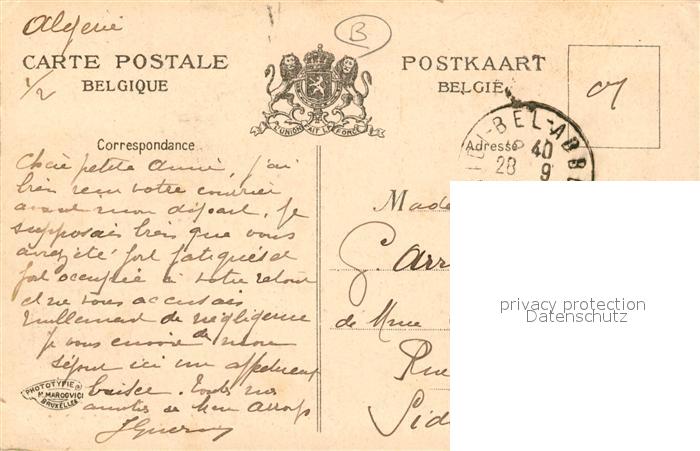 Algérie
B
CARTE POSTALE
BELGIQUE
1/2
L'UNION FAIT LA FORCE
POSTKAART
BELGIË
Correspondance
Adresse
BEL-ABB
40
28 9
Chère petite amie, j'ai
bien reçu votre courrier
avant mon départ. Je
supposais bien que vous
aviez été fort fatiguée et
fort occupée à votre retour
et ne vous accusais
nullement de négligence
je vous envoie de mon
séjour ici un affectueux
baiser. Toutes nos
amitiés de
Made
Garr
de Mme
Rue
Sid
PHOTOTYPIE
M. MARCOVICI
BRUXELLES
privacy protection
Datenschutz